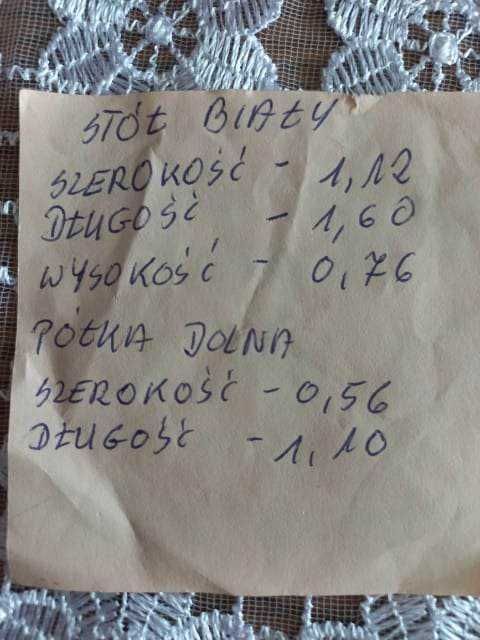 STÓŁ BIAŁY
SZEROKOŚĆ - 1,12
DŁUGOŚĆ - 1,60
WYSOKOŚĆ - 0,76
PÓŁKA DOLNA
SZEROKOŚĆ - 0,56
DŁUGOŚĆ - 1,10